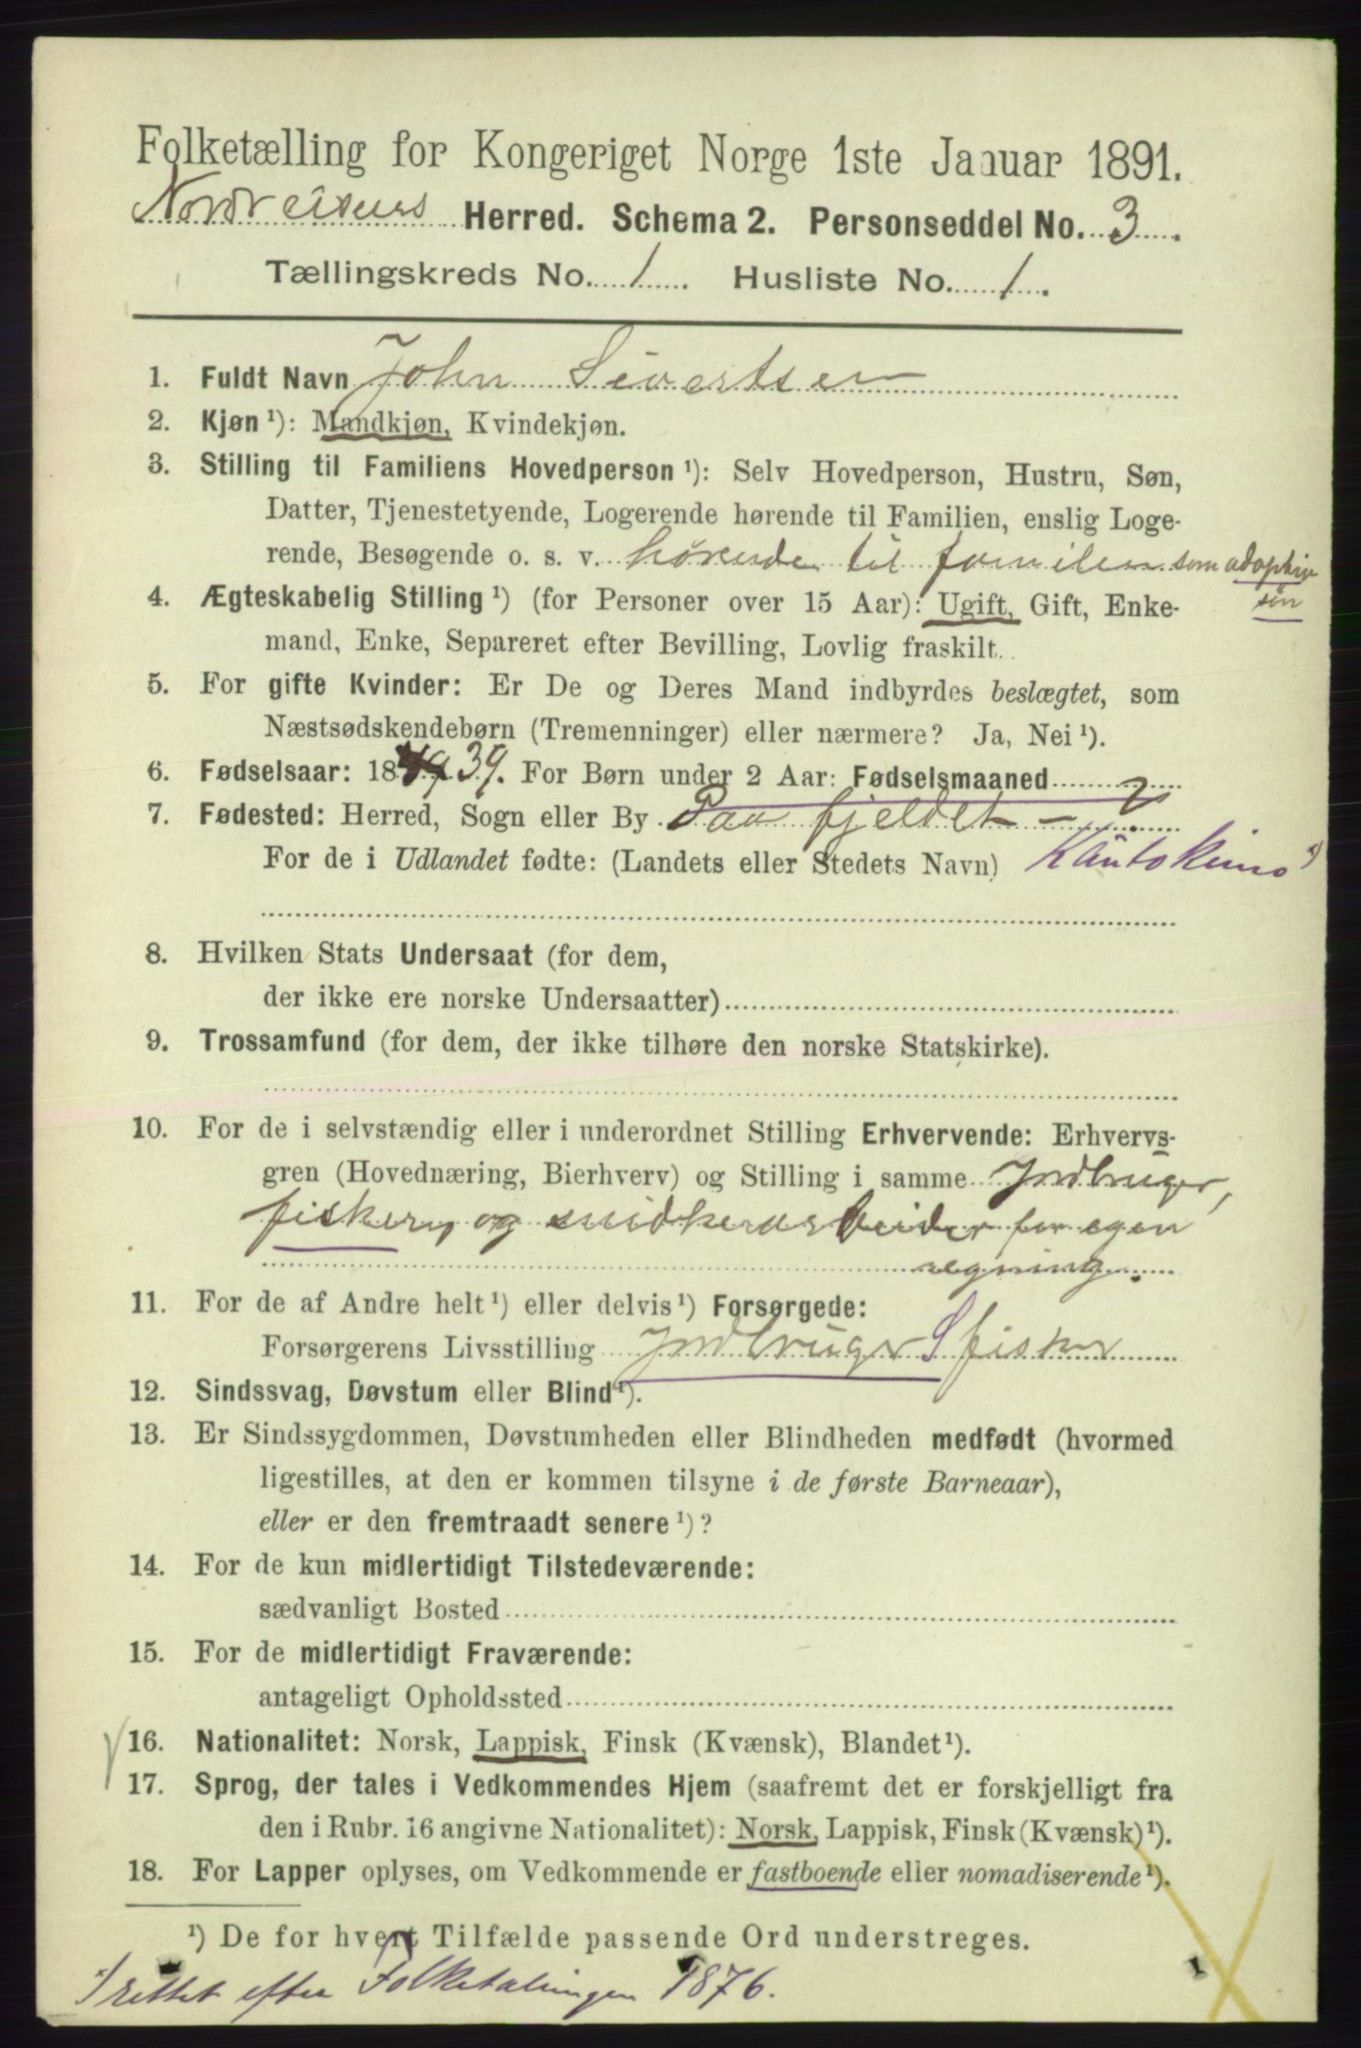 Folketælling for Kongeriget Norge 1ste Januar 1891.
Nordreisens Herred. Schema 2. Personseddel No. 3.
Tællingskreds No. 1. Husliste No. 1.
1. Fuldt Navn John Sivertsen
2. Kjøn ¹): Mandkjøn, Kvindekjøn.
3. Stilling til Familiens Hovedperson ¹): Selv Hovedperson, Hustru, Søn,
Datter, Tjenestetyende, Logerende hørende til Familien, enslig Loge-
rende, Besøgende o. s. v. hørende til familien som
søn
4. Ægteskabelig Stilling ¹) (for Personer over 15 Aar): Ugift, Gift, Enke-
mand, Enke, Separeret efter Bevilling, Lovlig fraskilt.
5. For gifte Kvinder: Er De og Deres Mand indbyrdes beslægtet, som
Næstsødskendebørn (Tremenninger) eller nærmere? Ja, Nei ¹).
6. Fødselsaar: 18 39. For Børn under 2 Aar: Fødselsmaaned
7. Fødested: Herred, Sogn eller By Paa fjeldet - ?
For de i Udlandet fødte: (Landets eller Stedets Navn) Kautokeino *)
8. Hvilken Stats Undersaat (for dem,
der ikke ere norske Undersaatter)
9. Trossamfund (for dem, der ikke tilhøre den norske Statskirke).
10. For de i selvstændig eller i underordnet Stilling Erhvervende: Erhvervs-
gren (Hovednæring, Bierhverv) og Stilling i samme Jordbruger,
fiskery og snidkerarbeider for egen
regning.
11. For de af Andre helt ¹) eller delvis ¹) Forsørgede:
Forsørgerens Livsstilling Jordbruger S fisker
12. Sindssvag, Døvstum eller Blind ¹).
13. Er Sindssygdommen, Døvstumheden eller Blindheden medfødt (hvormed
ligestilles, at den er kommen tilsyne i de første Barneaar),
eller er den fremtraadt senere ¹)?
14. For de kun midlertidigt Tilstedeværende:
sædvanligt Bosted
15. For de midlertidigt Fraværende:
antageligt Opholdssted
16. Nationalitet: Norsk, Lappisk, Finsk (Kvænsk), Blandet ¹).
17. Sprog, der tales i Vedkommendes Hjem (saafremt det er forskjelligt fra
den i Rubr. 16 angivne Nationalitet): Norsk, Lappisk, Finsk (Kvænsk) ¹).
18. For Lapper oplyses, om Vedkommende er fastboende eller nomadiserende ¹).
¹) De for hvert Tilfælde passende Ord understreges.
*) rettet efter Folketælingen 1876.